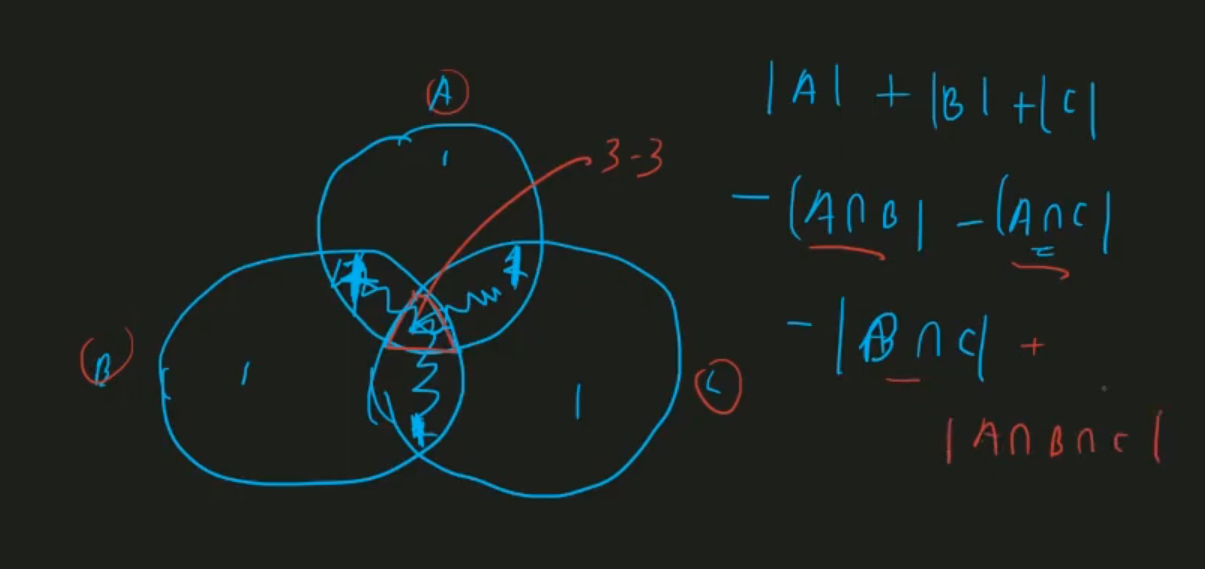 A
1
3-3
B
1
1
C
|A| + |B| + |C|
- |A∩B| - |A∩C|
- |B∩C| +
|A∩B∩C|